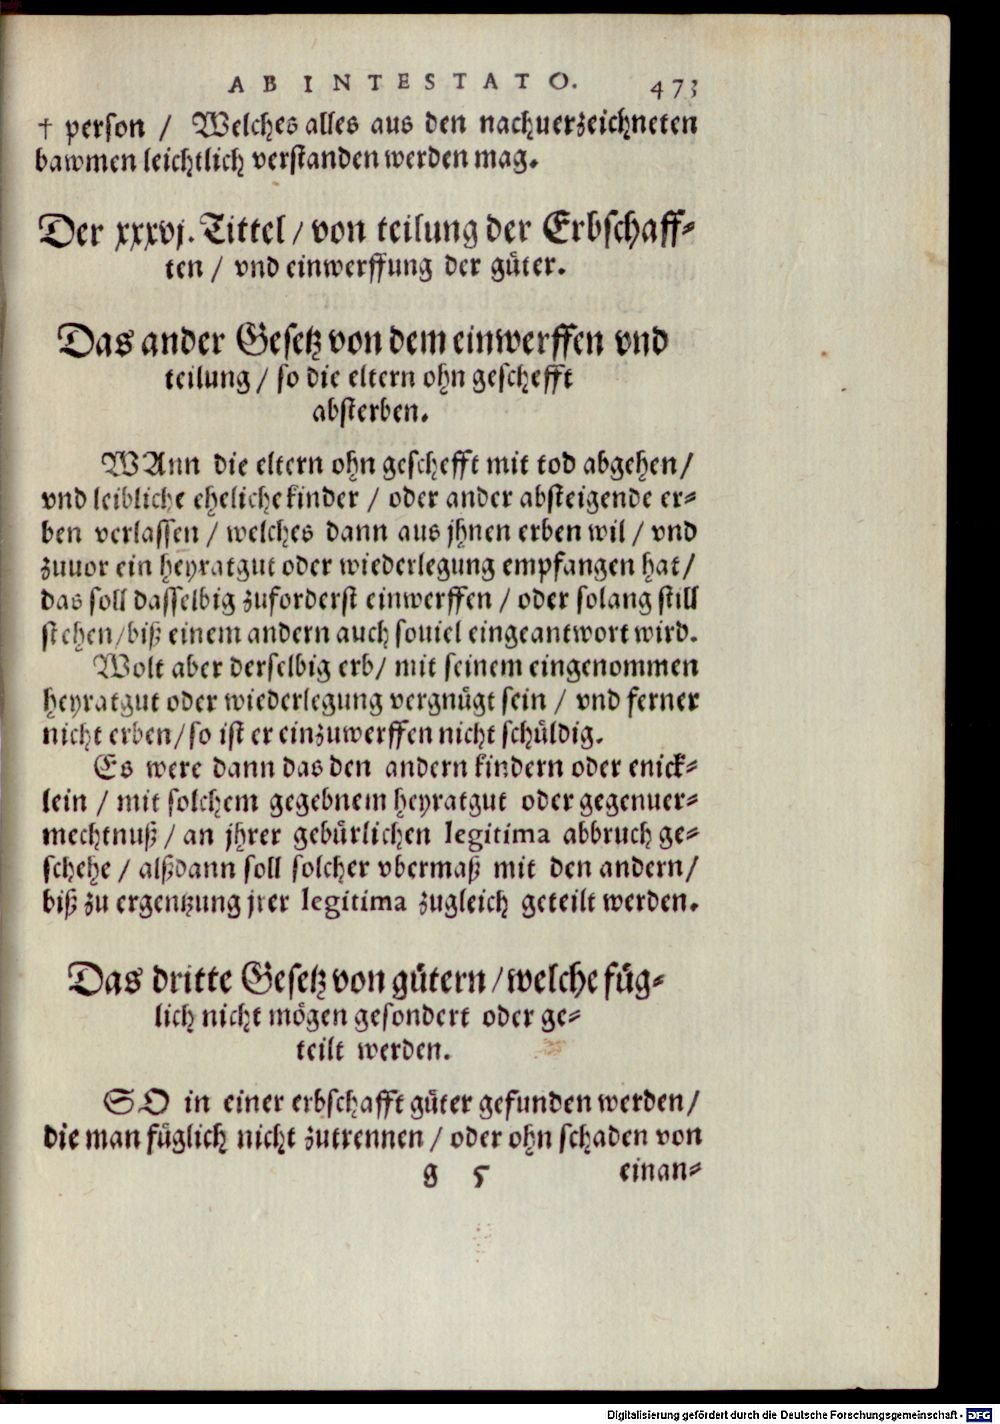 AB INTESTATO. 473
† person / Welches alles aus den nachuerzeichneten
bawmen leichtlich verstanden werden mag.
Der xxxvj. Tittel / von teilung der Erbschaff⸗
ten / vnd einwerffung der guͤter.
Das ander Gesetz von dem einwerffen vnd
teilung / so die eltern ohn geschefft
absterben.
WAnn die eltern ohn geschefft mit tod abgehen /
vnd leibliche eheliche kinder / oder ander absteigende er⸗
ben verlassen / welches dann aus jhnen erben wil / vnd
zuuor ein heyratgut oder wiederlegung empfangen hat /
das soll dasselbig zuforderst einwerffen / oder solang still
stehen / biß einem andern auch souiel eingeantwort wird.
Wolt aber derselbig erb / mit seinem eingenommen
heyratgut oder wiederlegung vergnuͤgt sein / vnd ferner
nicht erben / so ist er einzuwerffen nicht schuͤldig.
Es were dann das den andern kindern oder enick⸗
lein / mit solchem gegebnem heyratgut oder gegenuer⸗
mechtnuß / an jhrer gebuͤrlichen legitima abbruch ge⸗
schehe / alßdann soll solcher vbermaß mit den andern /
biß zu ergentzung jrer legitima zugleich geteilt werden.
Das dritte Gesetz von guͤtern / welche fuͤg⸗
lich nicht moͤgen gesondert oder ge⸗
teilt werden.
SO in einer erbschafft guͤter gefunden werden /
die man fuͤglich nicht zutrennen / oder ohn schaden von
g 5 einan⸗
Digitalisierung gefördert durch die Deutsche Forschungsgemeinschaft - DFG